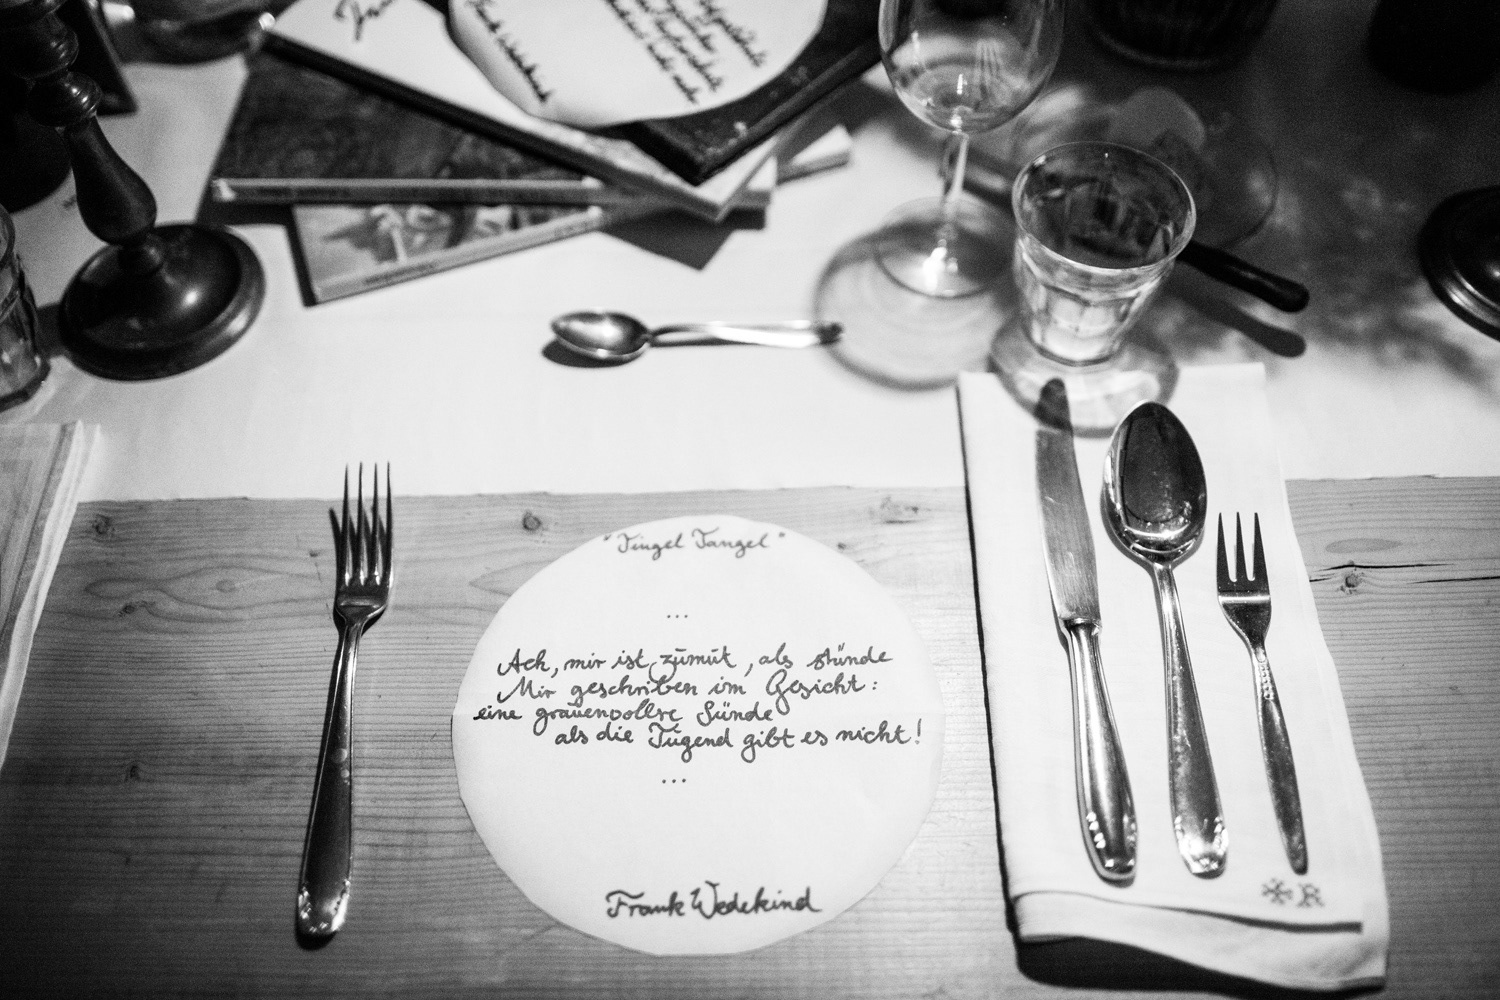 Frank Wedekind
"Tingel Tangel"
...
Ach, mir ist zumut, als stünde
Mir geschrieben im Gesicht:
eine grauenvollre Sünde
als die Tugend gibt es nicht!
...
Frank Wedekind